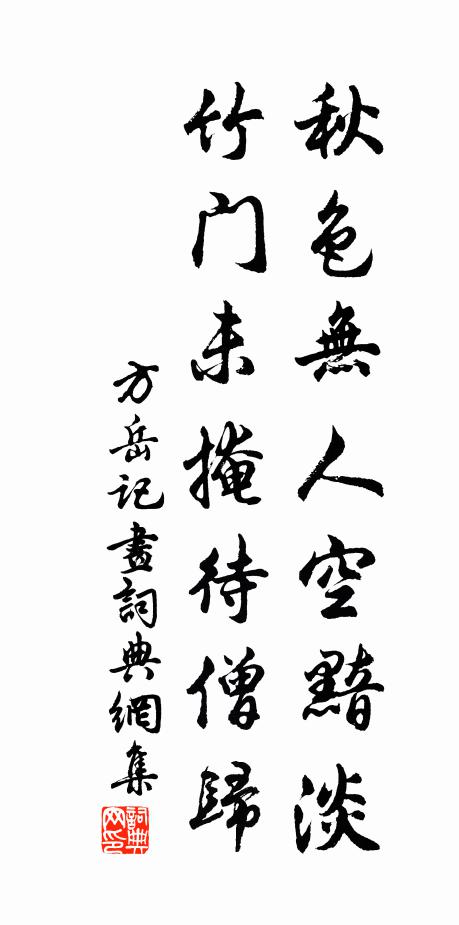 秋色無人空黯淡
竹門未掩待僧歸
方岳記畫詞典網集
詞典网印